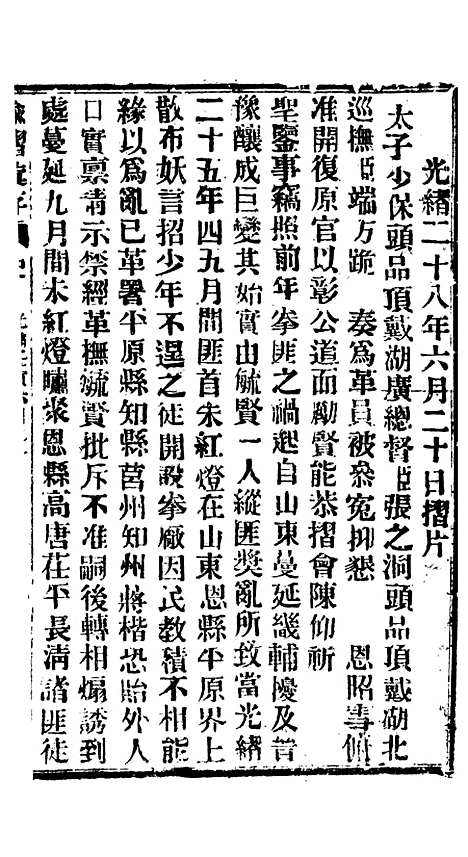 光緒二十八年六月二十日摺片
太子少保頭品頂戴湖廣總督臣張之洞頭品頂戴湖北
巡撫臣端方跪　奏爲革員被叅冤抑懇　恩昭雪俯
准開復原官以彰公道而勵賢能恭摺會陳仰祈
聖鑒事竊照前年拳匪之禍起自山東蔓延畿輔擾及晋
豫釀成巨變其始實由毓賢一人縱匪奬亂所致當光緒
二十五年四五月間匪首朱紅燈在山東恩縣平原界上
散布妖言招少年不逞之徒開設拳廠因民教積不相能
緣以爲亂已革署平原縣知縣莒州知州蔣楷恐貽外人
口實禀請示禁經革撫毓賢批斥不准嗣後轉相煽誘到
處蔓延九月間朱紅燈嘯聚恩縣高唐茌平長清諸匪徒